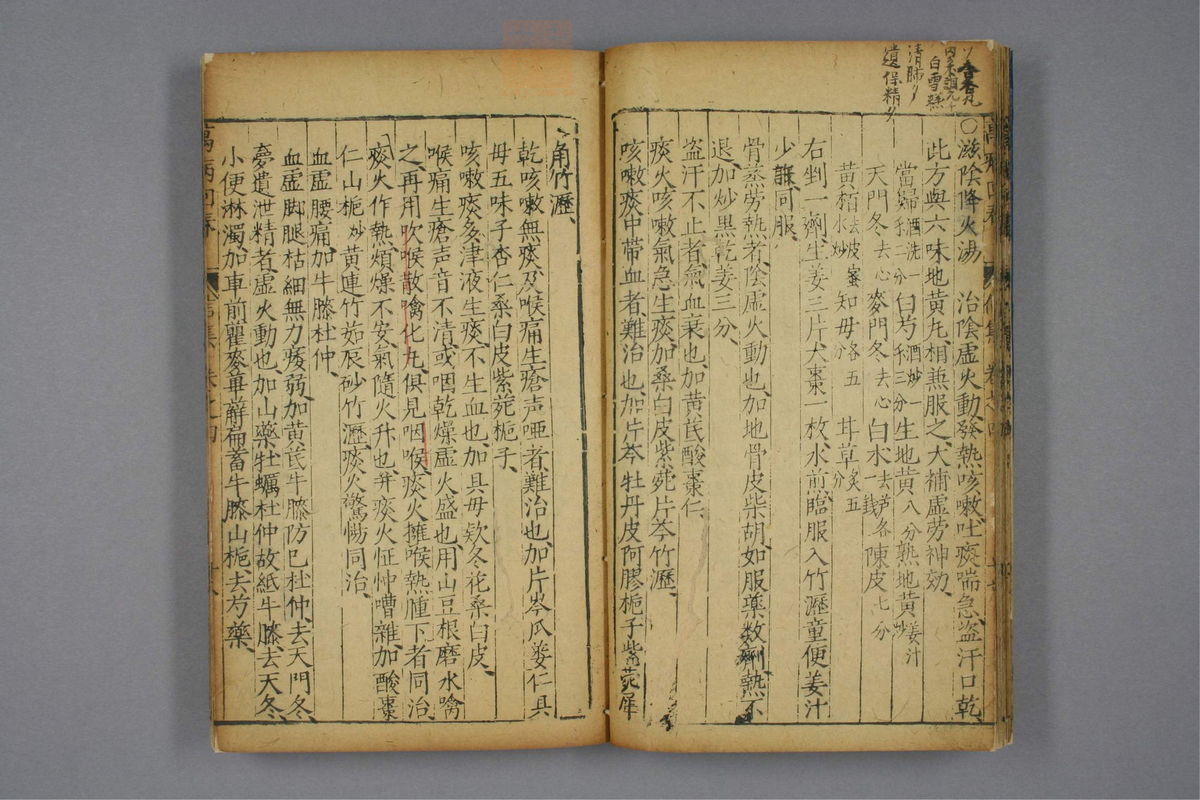 白雪糕
清肺〃
遺保精〃
○滋陰降火湯 治陰虛火動發熱咳嗽吐痰喘急盗汗口乾
此方與六味地黃丸相兼服之大補虛勞神効
當歸酒洗一釐二分白芍酒炒一釐三分生地黃八分熟地黃姜汁炒
天門冬去心麥門冬去心白朮去芦各一錢陳皮七分
黃栢去皮蜜水炒知母各五分 甘草炙五分
右剉一劑生姜三片大棗一枚水煎臨服入竹瀝童便姜汁
少許同服
骨蒸勞熱者陰虛火動也加地骨皮柴胡如服藥数劑熱不
退加炒黒乾姜三分
盗汗不止者氣血衰也加黃芪酸棗仁
痰火咳嗽氣急生痰加桑白皮紫菀片芩竹瀝
咳嗽痰中帶血者難治也加片芩牡丹皮阿膠栀子紫菀犀
角竹瀝
乾咳嗽無痰及喉痛生瘡声啞者難治也加片芩瓜蔞仁貝
母五味子杏仁桑白皮紫菀栀子
咳嗽痰多津液生痰不生血也加貝母欵冬花桑白皮
喉痛生瘡声音不清或咽乾燥虛火盛也用山豆根磨水噙
之再用吹喉散噙化丸俱見咽喉痰火擁喉熱腫下者同治
痰火作熱煩燥不安氣隨火升也并痰火怔忡嘈雜加酸棗
仁山栀炒黃連竹茹辰砂竹瀝痰火驚惕同治
血虛腰痛加牛膝杜仲
血虛脚腿枯細無力痿弱加黃芪牛膝防已杜仲去天門冬
夢遺泄精者虛火動也加山藥牡蠣杜仲故紙牛膝去天冬
小便淋濁加車前瞿麥萆薢萹蓄牛膝山栀去芍藥
萬病回春
卷之四